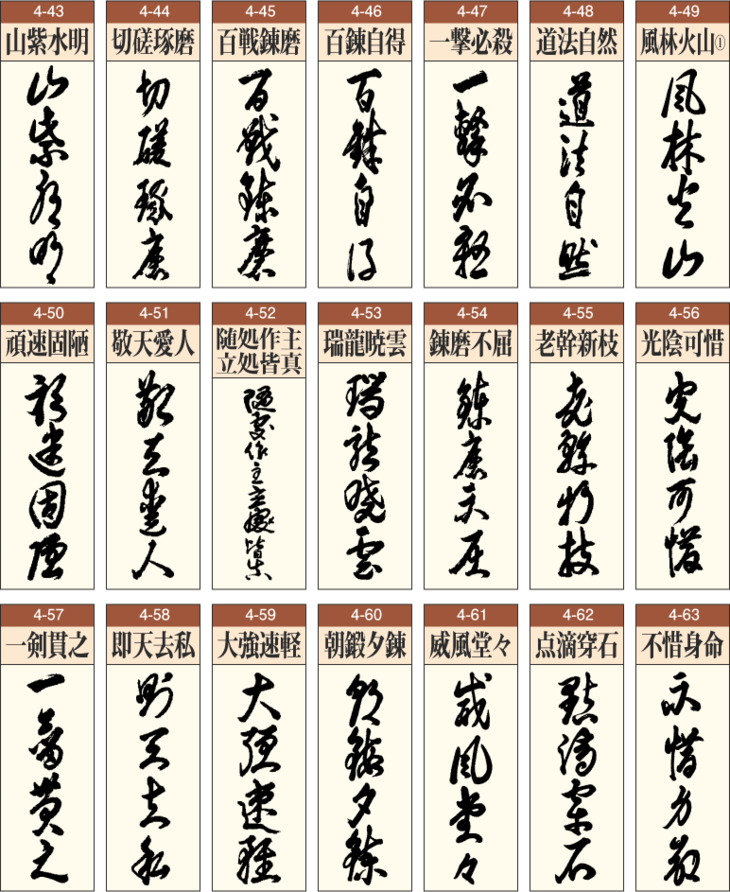 4-43
山紫水明
山紫水明
4-44
切磋琢磨
切磋琢磨
4-45
百戦錬磨
百戦錬磨
4-46
百錬自得
百錬自得
4-47
一撃必殺
一撃必殺
4-48
道法自然
道法自然
4-49
風林火山①
風林火山
4-50
頑速固陋
頑迷固陋
4-51
敬天愛人
敬天愛人
4-52
随処作主
立処皆真
隨處作主立處皆真
4-53
瑞龍暁雲
瑞龍暁雲
4-54
錬磨不屈
錬磨不屈
4-55
老幹新枝
老幹新枝
4-56
光陰可惜
光陰可惜
4-57
一剣貫之
一剣貫之
4-58
即天去私
則天去私
4-59
大強速軽
大強速軽
4-60
朝鍛夕錬
朝鍛夕錬
4-61
威風堂々
威風堂々
4-62
点滴穿石
點滴穿石
4-63
不惜身命
不惜身命